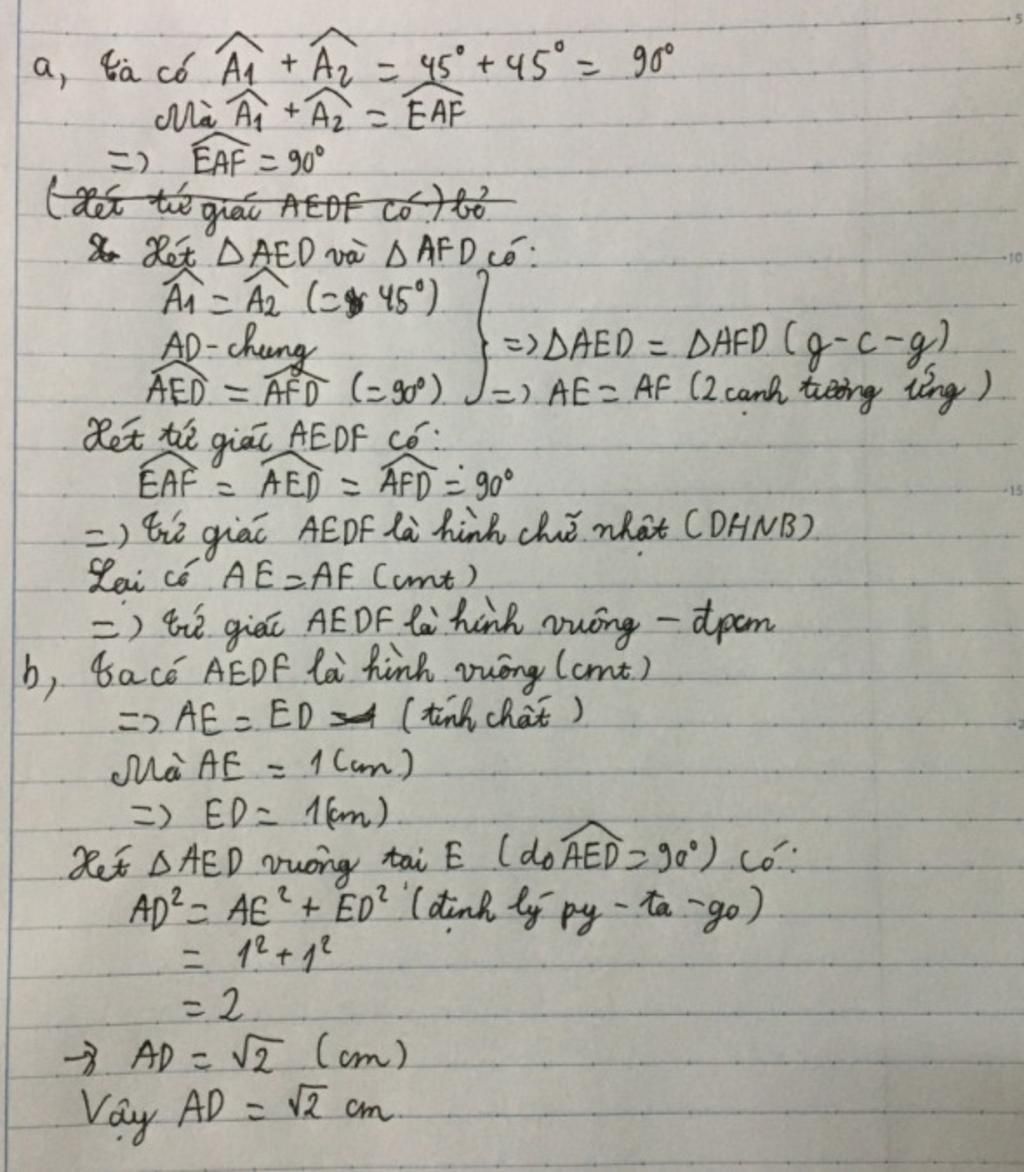 a, Ta có Â1 + Â2 = 45° + 45° = 90°
Mà Â1 + Â2 = \widehat{EAF}
=> \widehat{EAF} = 90°
(Xét tứ giác AEDF có) bỏ
Xét △AED và △AFD có:
Â1 = Â2 (= 45°)
AD-chung => △AED = △AFD (g-c-g)
\widehat{AED} = \widehat{AFD} (=90°) => AE = AF (2 cạnh tương ứng)
Xét tứ giác AEDF có:
\widehat{EAF} = \widehat{AED} = \widehat{AFD} = 90°
=> Tứ giác AEDF là hình chữ nhật (DHNB)
Lại có AE = AF (cmt)
=> Tứ giác AEDF là hình vuông - đpcm
b, Ta có AEDF là hình vuông (cmt)
=> AE = ED (tính chất)
Mà AE = 1 (cm)
=> ED = 1(cm)
Xét △AED vuông tại E (do \widehat{AED} = 90°) có:
AD² = AE² + ED² (định lý py-ta-go)
= 1² + 1²
= 2
→ AD = √2 (cm)
Vậy AD = √2 cm